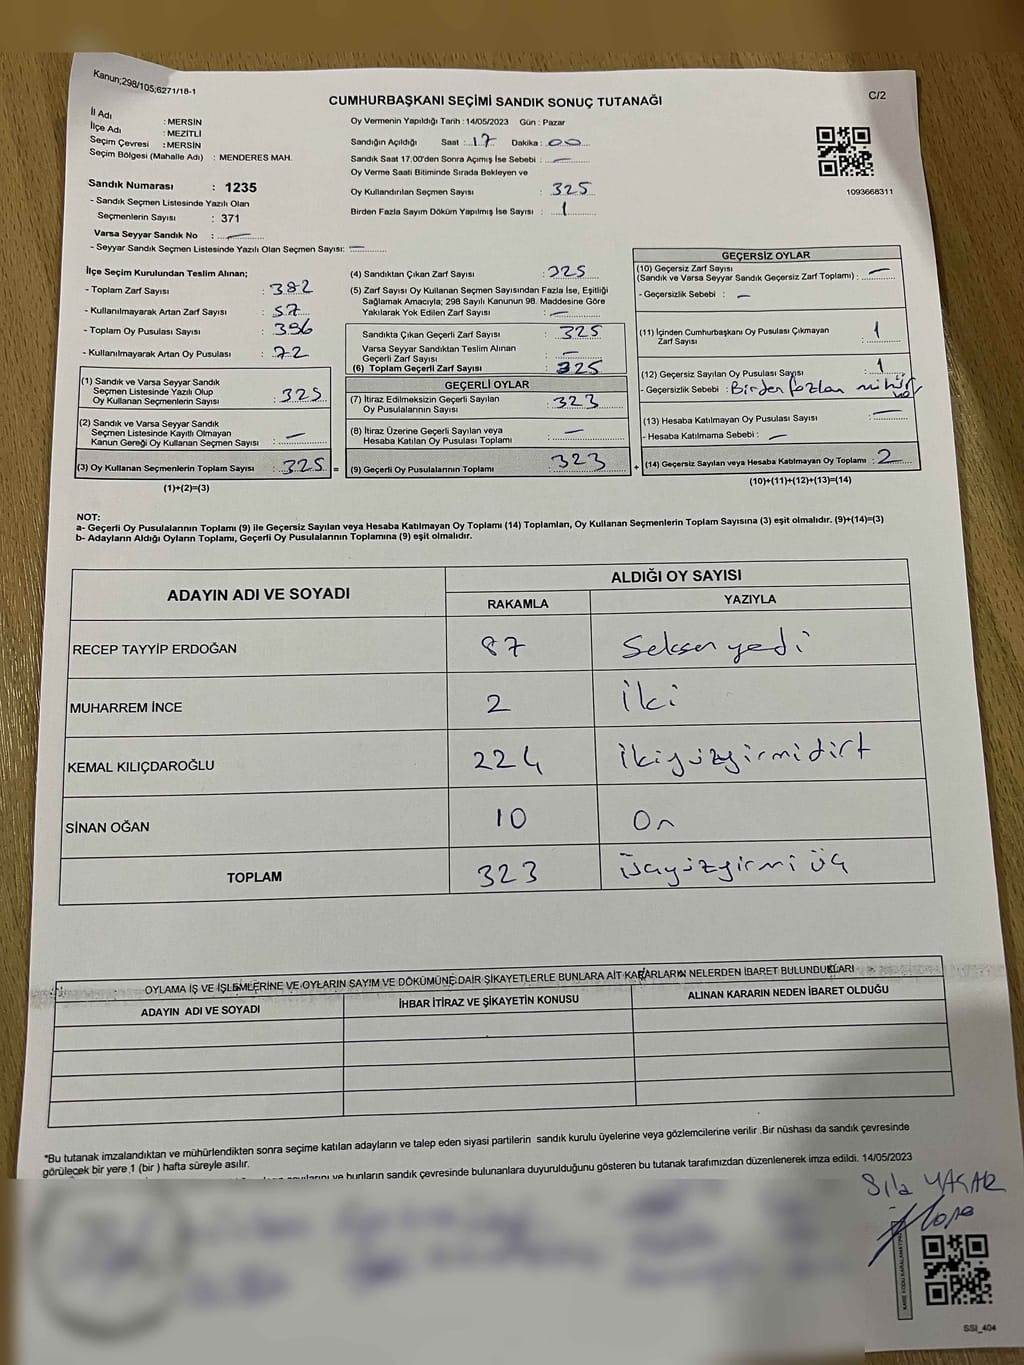 Kanun;298/105,6271/18-1
C/2
CUMHURBAŞKANI SEÇİMİ SANDIK SONUÇ TUTANAĞI
İl Adı : MERSİN
İlçe Adı : MEZİTLİ
Seçim Çevresi : MERSİN
Seçim Bölgesi (Mahalle Adı) : MENDERES MAH.
Sandık Numarası : 1235
- Sandık Seçmen Listesinde Yazılı Olan
Seçmenlerin Sayısı : 371
Varsa Seyyar Sandık No : —
- Seyyar Sandık Seçmen Listesinde Yazılı Olan Seçmen Sayısı: —
Oy Vermenin Yapıldığı Tarih : 14/05/2023 Gün : Pazar
Sandığın Açıldığı Saat : 17 Dakika : 00
Sandık Saat 17.00'den Sonra Açımış İse Sebebi : —
Oy Verme Saati Bitiminde Sırada Bekleyen ve
Oy Kullandırılan Seçmen Sayısı : 325
Birden Fazla Sayım Döküm Yapılmış İse Sayısı : 1
1093668311
İlçe Seçim Kurulundan Teslim Alınan;
- Toplam Zarf Sayısı : 382
- Kullanılmayarak Artan Zarf Sayısı : 57
- Toplam Oy Pusulası Sayısı : 396
- Kullanılmayarak Artan Oy Pusulası : 72
(1) Sandık ve Varsa Seyyar Sandık
Seçmen Listesinde Yazılı Olup
Oy Kullanan Seçmenlerin Sayısı : 325
(2) Sandık ve Varsa Seyyar Sandık
Seçmen Listesinde Kayıtlı Olmayan
Kanun Gereği Oy Kullanan Seçmen Sayısı : —
(3) Oy Kullanan Seçmenlerin Toplam Sayısı : 325 =
(1)+(2)=(3)
(4) Sandıktan Çıkan Zarf Sayısı : 325
(5) Zarf Sayısı Oy Kullanan Seçmen Sayısından Fazla İse, Eşitliği
Sağlamak Amacıyla; 298 Sayılı Kanunun 98. Maddesine Göre
Yakılarak Yok Edilen Zarf Sayısı : —
Sandıkta Çıkan Geçerli Zarf Sayısı : 325
Varsa Seyyar Sandıktan Teslim Alınan
Geçerli Zarf Sayısı : —
(6) Toplam Geçerli Zarf Sayısı : 325
GEÇERLİ OYLAR
(7) İtiraz Edilmeksizin Geçerli Sayılan
Oy Pusulalarının Sayısı : 323
(8) İtiraz Üzerine Geçerli Sayılan veya
Hesaba Katılan Oy Pusulası Toplamı : —
(9) Geçerli Oy Pusulalarının Toplamı : 323 +
GEÇERSİZ OYLAR
(10) Geçersiz Zarf Sayısı
(Sandık ve Varsa Seyyar Sandık Geçersiz Zarf Toplamı) : —
- Geçersizlik Sebebi : —
(11) İçinden Cumhurbaşkanı Oy Pusulası Çıkmayan
Zarf Sayısı : 1
(12) Geçersiz Sayılan Oy Pusulası Sayısı : 1
- Geçersizlik Sebebi : Birden fazlan mühür
(13) Hesaba Katılmayan Oy Pusulası Sayısı : —
- Hesaba Katılmama Sebebi : —
(14) Geçersiz Sayılan veya Hesaba Katılmayan Oy Toplamı : 2
(10)+(11)+(12)+(13)=(14)
NOT:
a- Geçerli Oy Pusulalarının Toplamı (9) ile Geçersiz Sayılan veya Hesaba Katılmayan Oy Toplamı (14) Toplamları, Oy Kullanan Seçmenlerin Toplam Sayısına (3) eşit olmalıdır. (9)+(14)=(3)
b- Adayların Aldığı Oyların Toplamı, Geçerli Oy Pusulalarının Toplamına (9) eşit olmalıdır.
ADAYIN ADI VE SOYADI ALDIĞI OY SAYISI
RAKAMLA YAZIYLA
RECEP TAYYİP ERDOĞAN 87 Seksen yedi
MUHARREM İNCE 2 İki
KEMAL KILIÇDAROĞLU 224 İkiyüzyirmidört
SİNAN OĞAN 10 On
TOPLAM 323 Üçyüzyirmi üç
OYLAMA İŞ VE İŞLEMLERİNE VE OYLARIN SAYIM VE DÖKÜMÜNE DAİR ŞİKAYETLERLE BUNLARA AİT KARARLARIN NELERDEN İBARET BULUNDUKLARI
ADAYIN ADI VE SOYADI İHBAR İTİRAZ VE ŞİKAYETİN KONUSU ALINAN KARARIN NEDEN İBARET OLDUĞU
*Bu tutanak imzalandıktan ve mühürlendikten sonra seçime katılan adayların ve talep eden siyasi partilerin sandık kurulu üyelerine veya gözlemcilerine verilir .Bir nüshası da sandık çevresinde
görülecek bir yere 1 (bir ) hafta süreyle asılır.
ve bunların sandık çevresinde bulunanlara duyurulduğunu gösteren bu tutanak tarafımızdan düzenlenerek imza edildi. 14/05/2023
Sıla YAŞAR
SSI_404